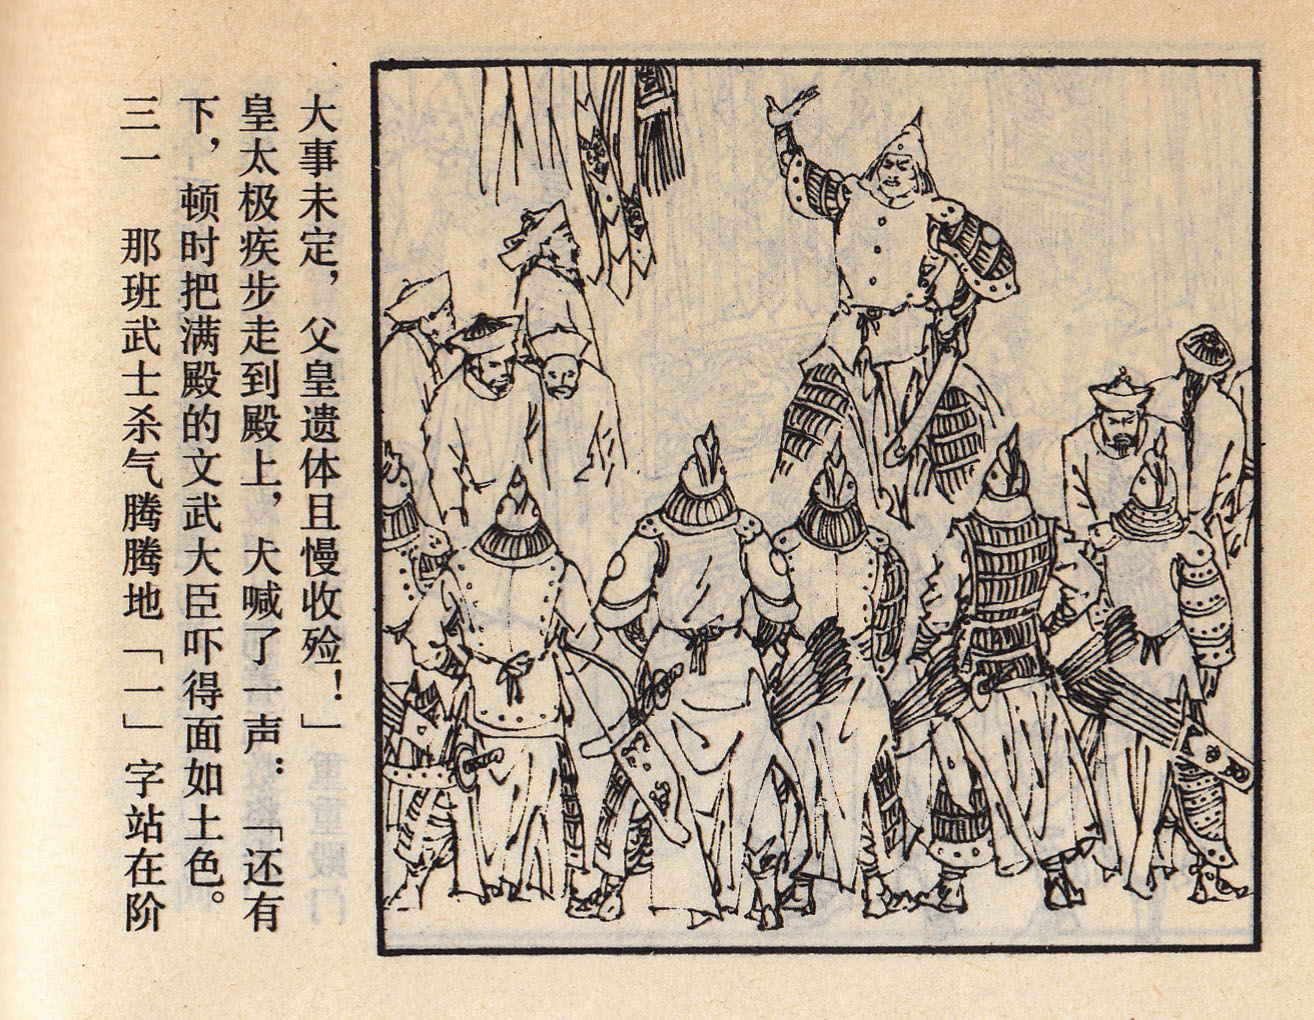 三一　那班武士杀气腾腾地「一」字站在阶
下，顿时把满殿的文武大臣吓得面如土色。
皇太极疾步走到殿上，大喊了一声：「还有
大事未定，父皇遗体且慢收殓！」